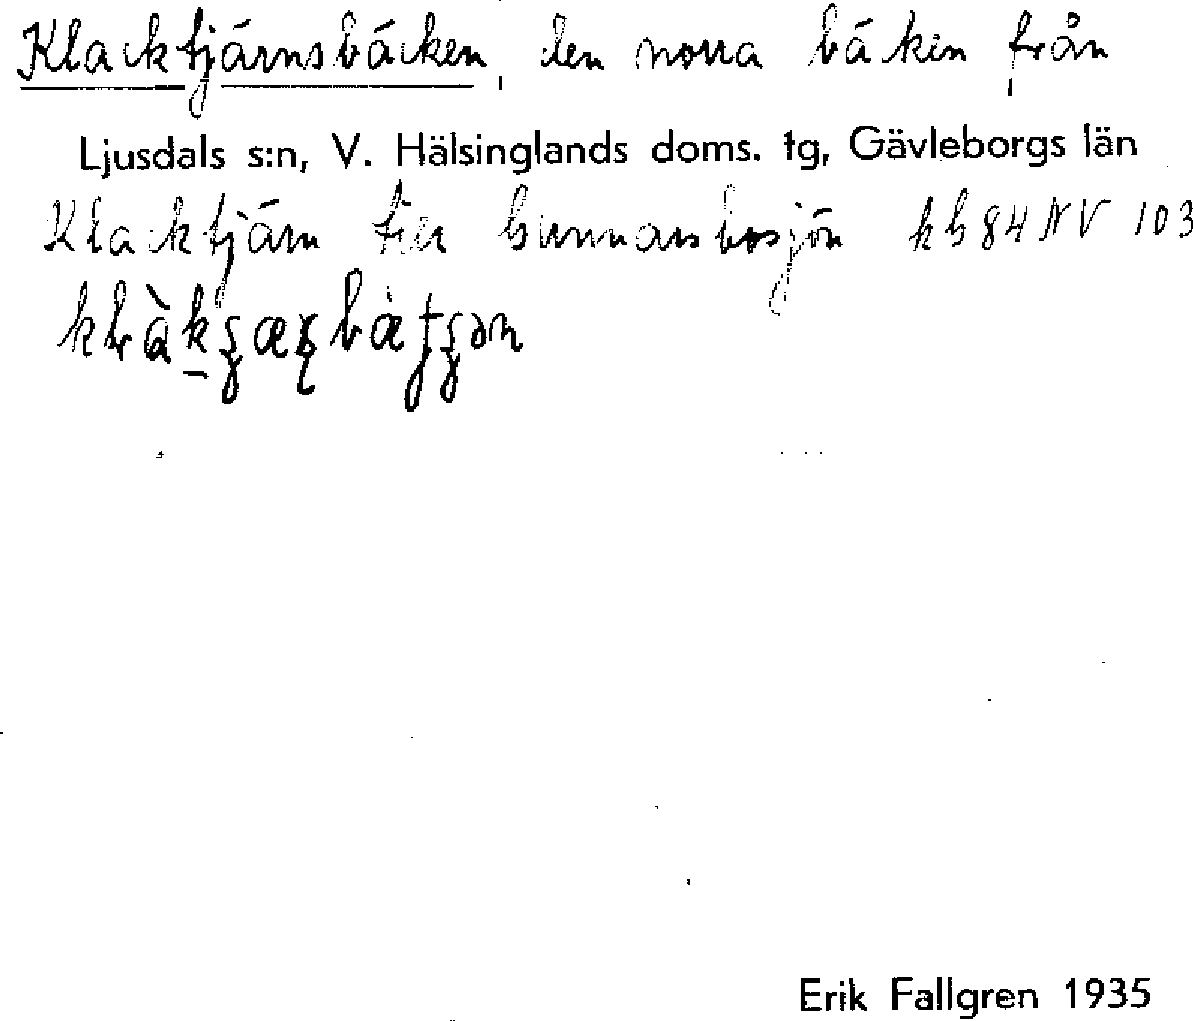 Klacktjärnsbäcken, den norra bäcken från
Ljusdals s:n, V. Hälsinglands doms. tg, Gävleborgs län
Klacktjärn till Gunnarsbosjön kb 84 NV 103
Erik Fallgren 1935